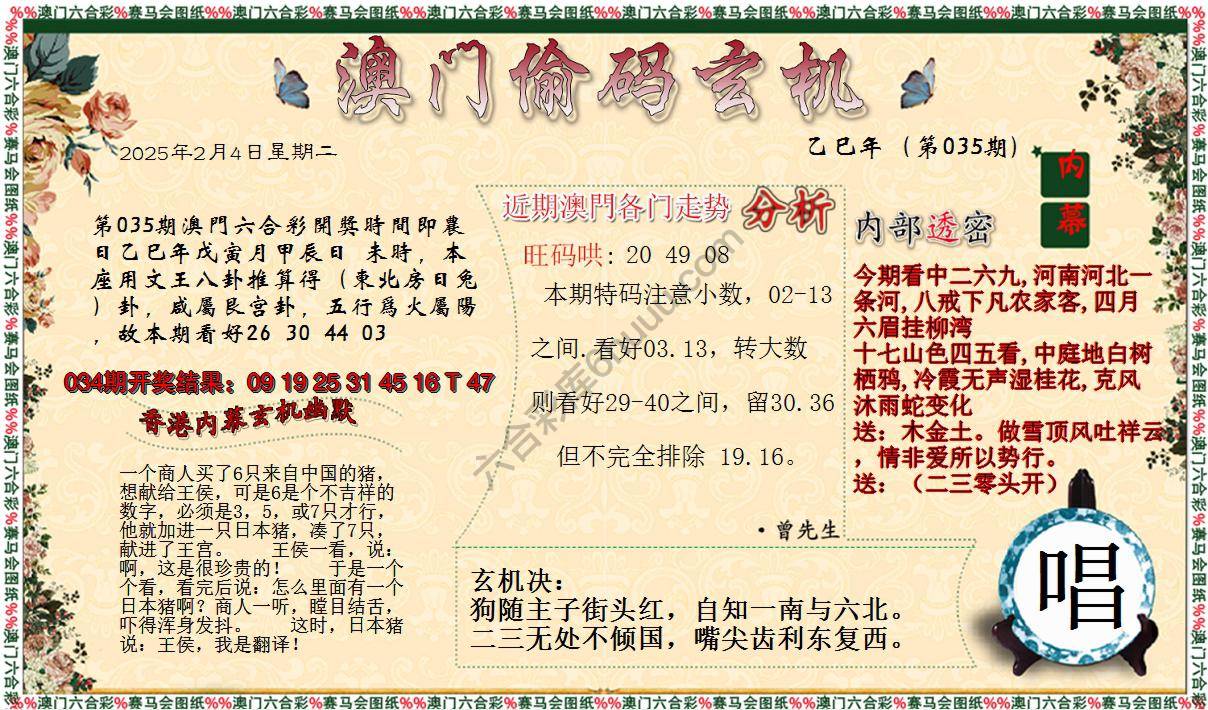 %%澳门六合彩%赛马会图纸%%澳门六合彩%赛马会图纸%%澳门六合彩%赛马会图纸%%澳门六合彩%赛马会图纸%%澳门六合彩%赛马会图纸%%澳门六合彩%赛马会图纸%%
澳门偷码玄机
2025年2月4日星期二
乙巳年（第035期）
内
幕
第035期澳門六合彩開獎時間即農
日乙巳年戊寅月甲辰日 未時，本
座用文王八卦推算得（東北房日兔
）卦，咸屬艮宫卦，五行爲火屬陽
，故本期看好26 30 44 03
034期开奖结果：09 19 25 31 45 16 T 47
香港内幕玄机幽默
一个商人买了6只来自中国的猪，
想献给王侯，可是6是个不吉祥的
数字，必须是3，5，或7只才行，
他就加进一只日本猪，凑了7只，
献进了王宫。 王侯一看，说：
啊，这是很珍贵的！ 于是一个
个看，看完后说：怎么里面有一个
日本猪啊？商人一听，瞠目结舌，
吓得浑身发抖。 这时，日本猪
说：王侯，我是翻译！
近期澳門各门走势 分析
旺码哄: 20 49 08
本期特码注意小数，02-13
之间.看好03.13，转大数
则看好29-40之间，留30.36
但不完全排除 19.16。
·曾先生
内部透密
今期看中二六九,河南河北一
条河,八戒下凡农家客,四月
六眉挂柳湾
十七山色四五看,中庭地白树
栖鸦,冷霞无声湿桂花,克风
沐雨蛇变化
送：木金土。做雪顶风吐祥云
，情非爱所以势行。
送：（二三零头开）
玄机决：
狗随主子街头红，自知一南与六北。
二三无处不倾国，嘴尖齿利东复西。
唱
%%澳门六合彩%赛马会图纸%%澳门六合彩%赛马会图纸%%澳门六合彩%赛马会图纸%%澳门六合彩%赛马会图纸%%澳门六合彩%赛马会图纸%%澳门六合彩%赛马会图纸%%